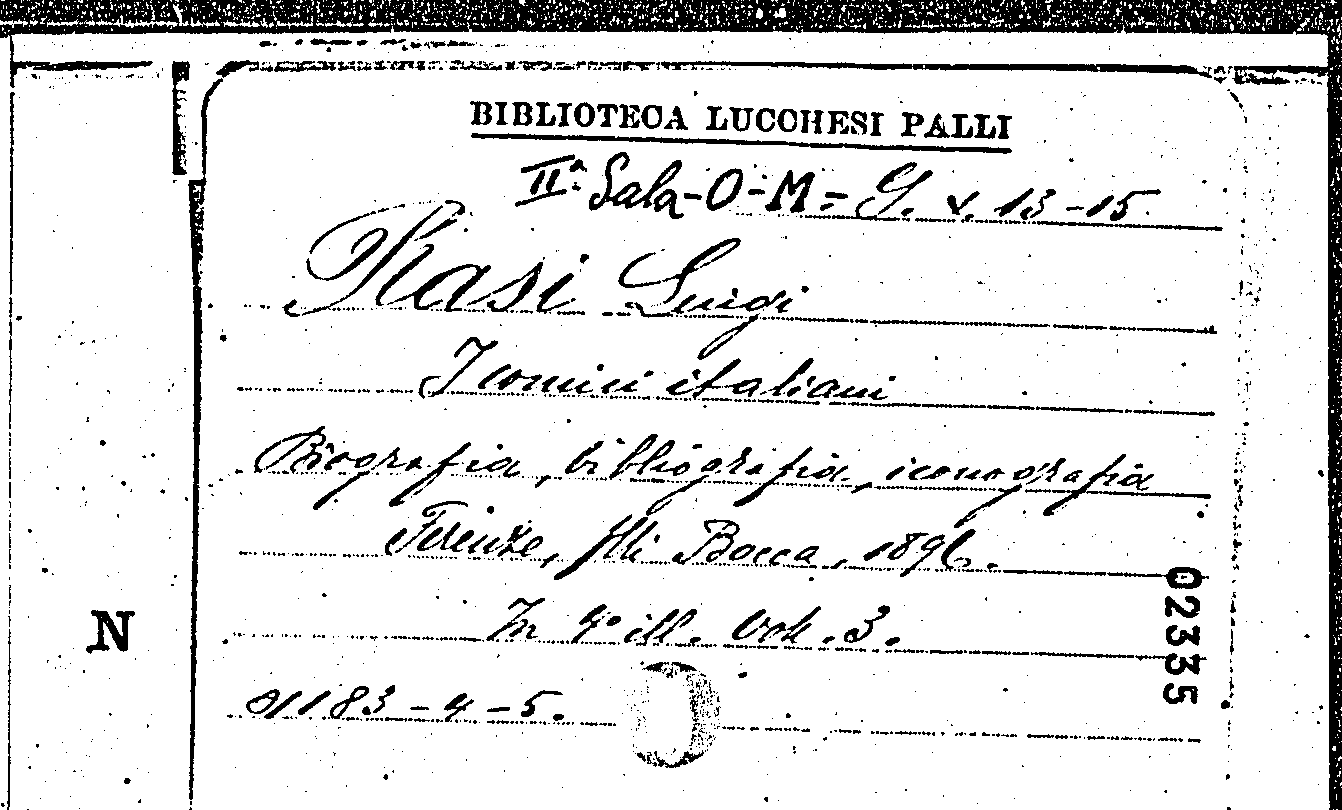 BIBLIOTECA LUCCHESI PALLI
IIª Sala-O-M= G. v. 13-15
Rasi Luigi
I comici italiani
Biografia, bibliografia, iconografia
Firenze, flli Bocca, 1896.
In 4° ill. Vol. 3.
1183-4-5.
02335
N